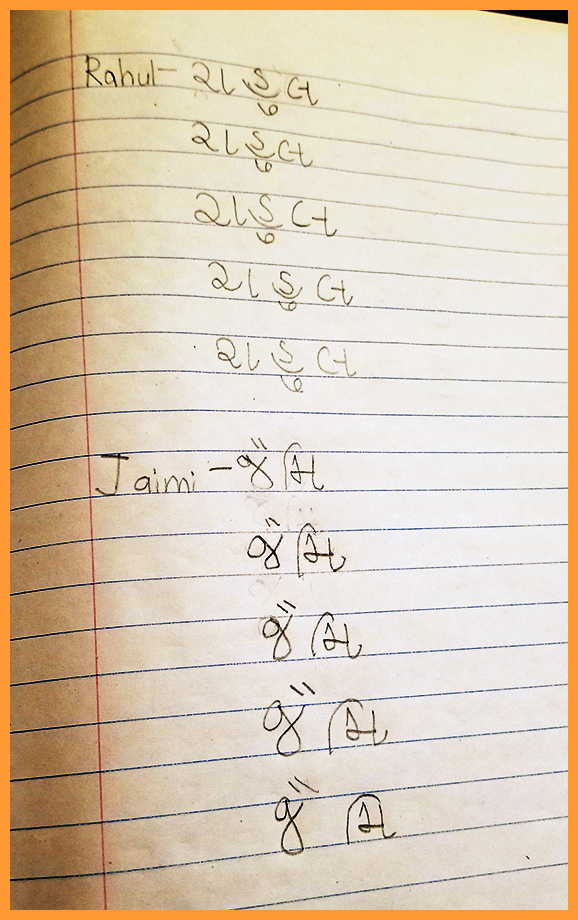 Rahul- રાહુલ
રાહુલ
રાહુલ
રાહુલ
રાહુલ
Jaimi - જૈમિ
જૈમિ
જૈમિ
જૈમિ
જૈમિ